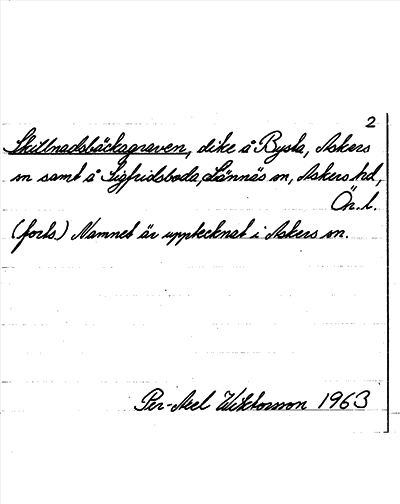 2
Skillnadsbäckagraven, dike å Bysta, Askers
sn samt å Sigfridsboda, Lännäs sn, Askers hd,
Ön. l.
(forts.) Namnet är upptecknat i Askers sn.
Per-Axel Wiktorsson 1963